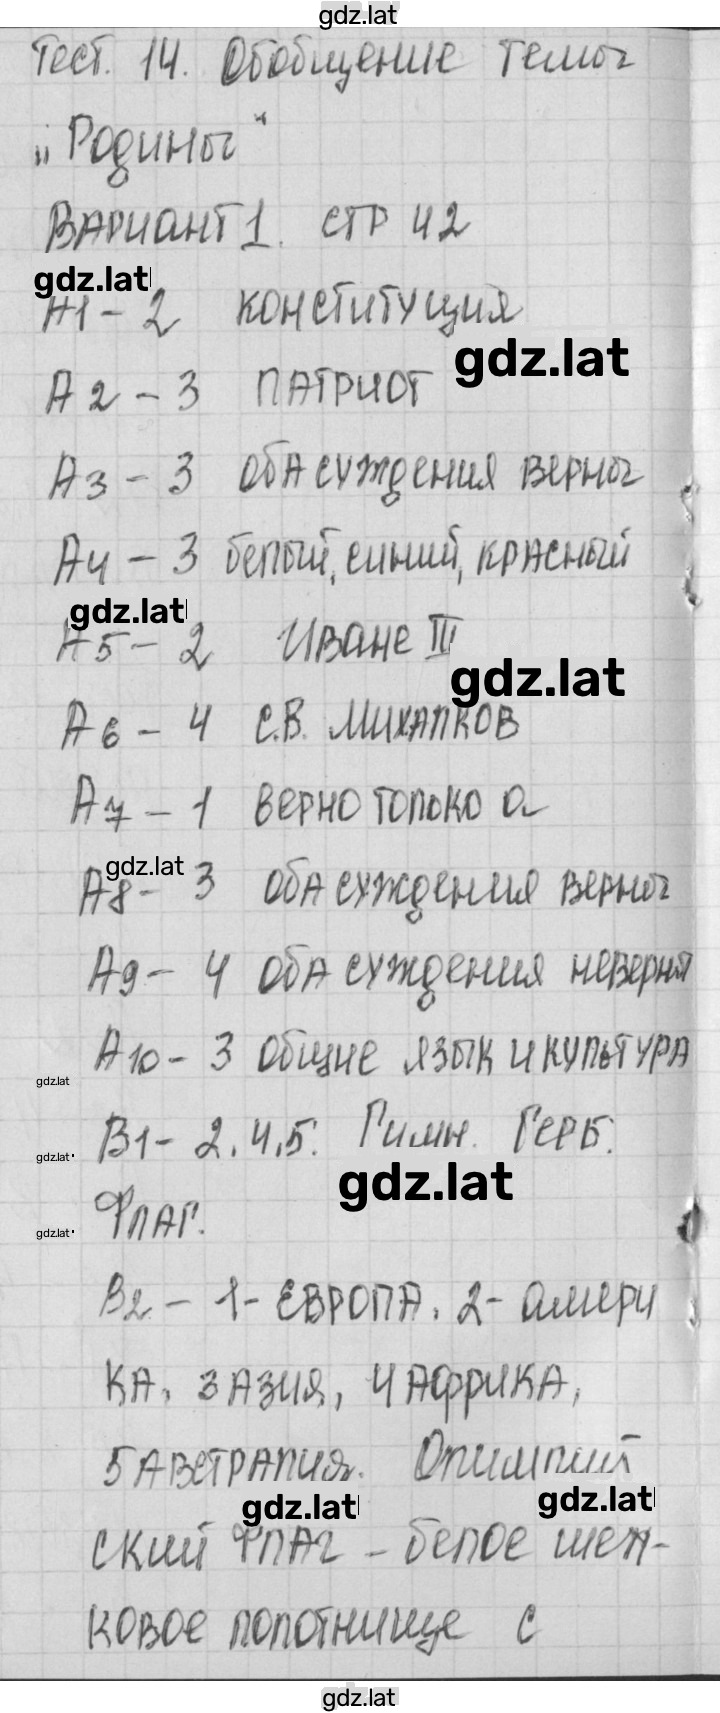 gdz.lat
Тест. 14. Обобщение темы
„Родины“
Вариант 1. стр 42
gdz.lat
А1 - 2 конституция
gdz.lat
А2 - 3 патриот
А3 - 3 оба суждения верны
А4 - 3 белый, синий, красный
gdz.lat
А5 - 2 Иване III
gdz.lat
А6 - 4 С.В. Михалков
А7 - 1 верно только а
gdz.lat
А8 - 3 оба суждения верны
А9 - 4 оба суждения неверны
А10 - 3 общие язык и культура
gdz.lat
В1 - 2, 4, 5. Гимн. Герб.
gdz.lat
gdz.lat
Флаг.
gdz.lat
В2 - 1- Европа, 2- Амери
ка, 3 Азия, 4 Африка,
5 Австралия. Олимпий
gdz.lat
gdz.lat
ский флаг - белое шел-
ковое полотнище с
gdz.lat